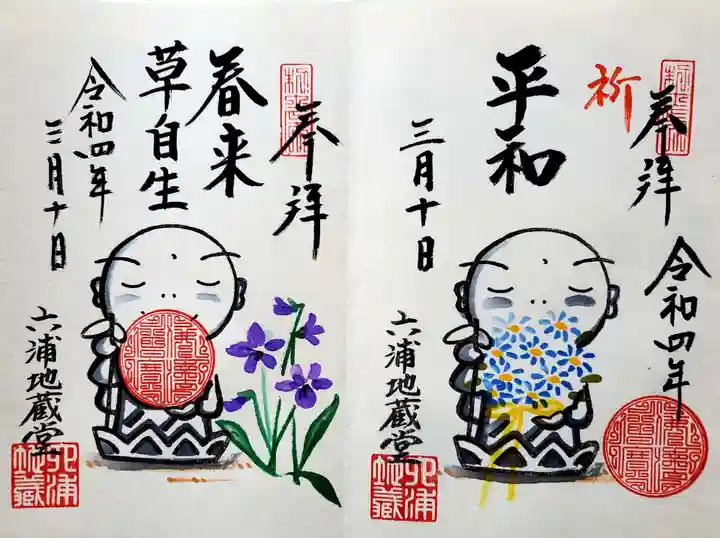 祈
奉拝
令和四年
平和
三月十日
六浦地蔵堂
六浦
地蔵
奉拝
春来
草自生
令和四年
三月十日
六浦地蔵堂
六浦
地蔵